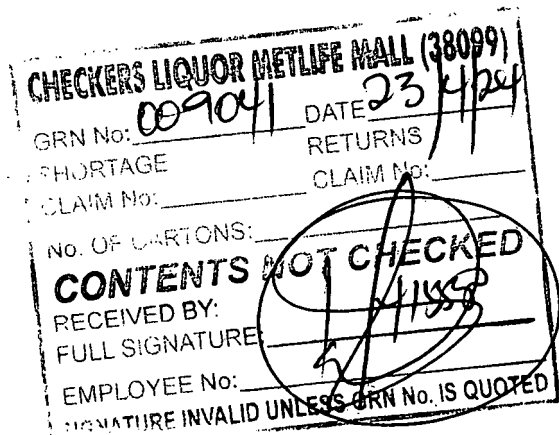 CHECKERS LIQUOR METLIFE MALL (38099)
GRN No: 009041 DATE 23/4/24
SHORTAGE RETURNS
CLAIM No: CLAIM No:
No. OF CARTONS:
CONTENTS NOT CHECKED
RECEIVED BY:
FULL SIGNATURE:
EMPLOYEE No:
SIGNATURE INVALID UNLESS GRN No. IS QUOTED